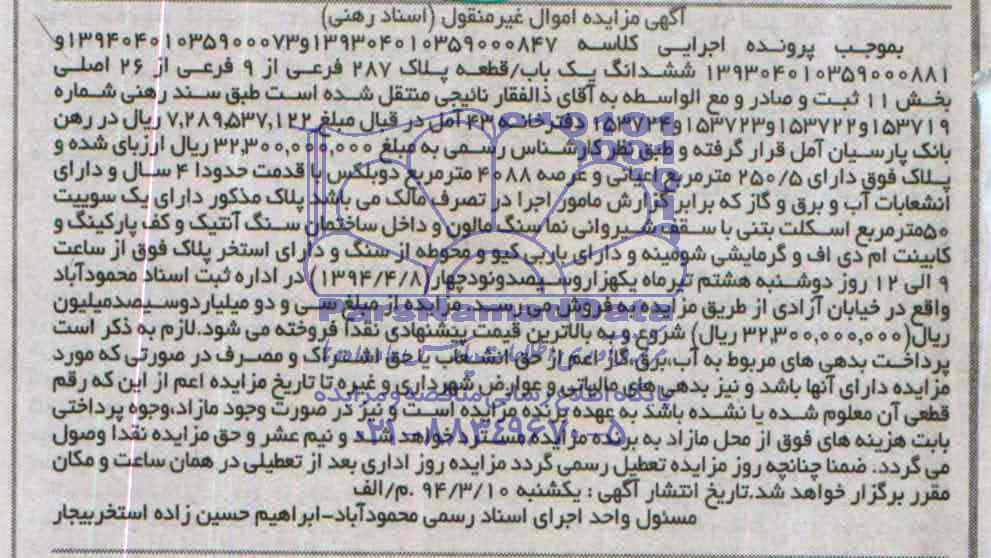 آگهی مزایده اموال غیرمنقول (اسناد رهنی)
بموجب پرونده اجرایی کلاسه ۱۳۹۳۰۴۰۱۰۳۵۹۰۰۰۸۴۷و۱۳۹۴۰۴۰۱۰۳۵۹۰۰۰۰۷۳و
۱۳۹۳۰۴۰۱۰۳۵۹۰۰۰۸۸۱ ششدانگ یک باب/قطعه پلاک ۲۸۷ فرعی از ۹ فرعی از ۲۶ اصلی
بخش ۱۱ ثبت و صادر و مع الواسطه به آقای ذالفقار نائیجی منتقل شده است طبق سند رهنی شماره
۱۵۳۷۱۹و۱۵۳۷۲۲و۱۵۳۷۲۳و۱۵۳۷۲۴ دفترخانه ۴۳ آمل در قبال مبلغ ۷,۲۸۹,۵۳۷,۱۲۲ ریال در رهن
بانک پارسیان آمل قرار گرفته و طبق نظر کارشناس رسمی به مبلغ ۳۲,۳۰۰,۰۰۰,۰۰۰ ریال ارزیای شده و
پلاک فوق دارای ۲۵۰/۵ مترمربع اعیانی و عرصه ۴۰۸۸ مترمربع دوبلکس با قدمت حدودا ۴ سال و دارای
انشعابات آب و برق و گاز که برابر گزارش مامور اجرا در تصرف مالک می باشد پلاک مذکور دارای یک سوییت
۵۰مترمربع اسکلت بتنی با سقف شیروانی نما سنگ مالون و داخل ساختمان سنگ آنتیک و کف پارکینگ و
کابینت ام دی اف و گرمایشی شومینه و دارای باربی کیو و محوطه از سنگ و دارای استخر پلاک فوق از ساعت
۹ الی ۱۲ روز دوشنبه هشتم تیرماه یکهزاروسیصدونودچهار(۱۳۹۴/۴/۸) در اداره ثبت اسناد محمودآباد
واقع در خیابان آزادی از طریق مزایده به فروش می رسد. مزایده از مبلغ سی و دو میلیاردوسیصدمیلیون
ریال(۳۲,۳۰۰,۰۰۰,۰۰۰ ریال) شروع و به بالاترین قیمت پیشنهادی نقدا فروخته می شود.لازم به ذکر است
پرداخت بدهی های مربوط به آب،برق،گاز اعم از حق انشعاب یا حق اشتراک و مصرف در صورتی که مورد
مزایده دارای آنها باشد و نیز بدهی های مالیاتی و عوارض شهرداری و غیره تا تاریخ مزایده اعم از این که رقم
قطعی آن معلوم شده یا نشده باشد به عهده برنده مزایده است و نیز در صورت وجود مازاد،وجوه پرداختی
بابت هزینه های فوق از محل مازاد به برنده مزایده مسترد خواهد شد و نیم عشر و حق مزایده نقدا وصول
می گردد. ضمنا چنانچه روز مزایده تعطیل رسمی گردد مزایده روز اداری بعد از تعطیلی در همان ساعت و مکان
مقرر برگزار خواهد شد.تاریخ انتشار آگهی : یکشنبه ۹۴/۳/۱۰ .م/الف
مسئول واحد اجرای اسناد رسمی محمودآباد-ابراهیم حسین زاده استخربیجار
ParsNamadData
پایگاه اطلاع رسانی مناقصه و مزایده
۰۲۱-۸۸۳۴۹۶۷۰-۵